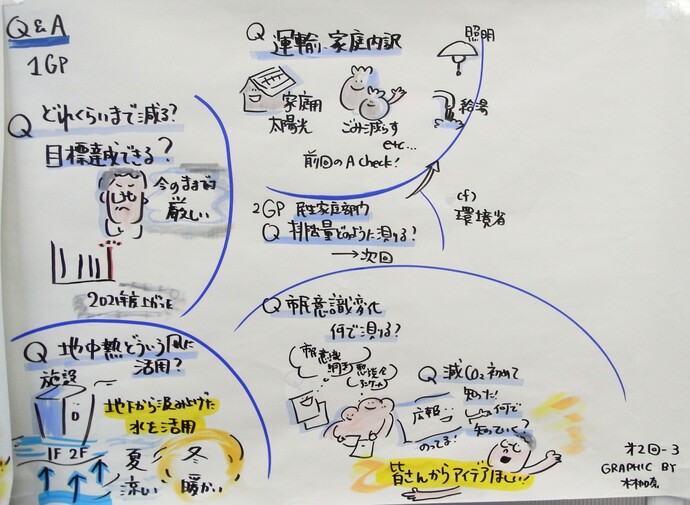 Q&A
1GP
Q どれくらいまで減る?
目標達成できる?
今のままで
厳しい
2021年度上がった
Q 地中熱どういう風に
活用?
施設
地下から汲み上げた
水を活用
1F 2F
夏
涼しい
冬
暖かい
Q 運輸、家庭内訳
家庭用
太陽光
ごみ減らす
etc...
前回のA check!
照明
給湯
2GP 民生家庭部門
Q 排出量どのように測る?
→次回
(cf)
環境省
Q 市民意識変化
何で測る?
市民意識
調査
アンケート
Q 減CO2初めて
知った!
何で
知っていく?
広報
のってる!
皆さんからアイデアほしい!
第2回-3
GRAPHIC BY